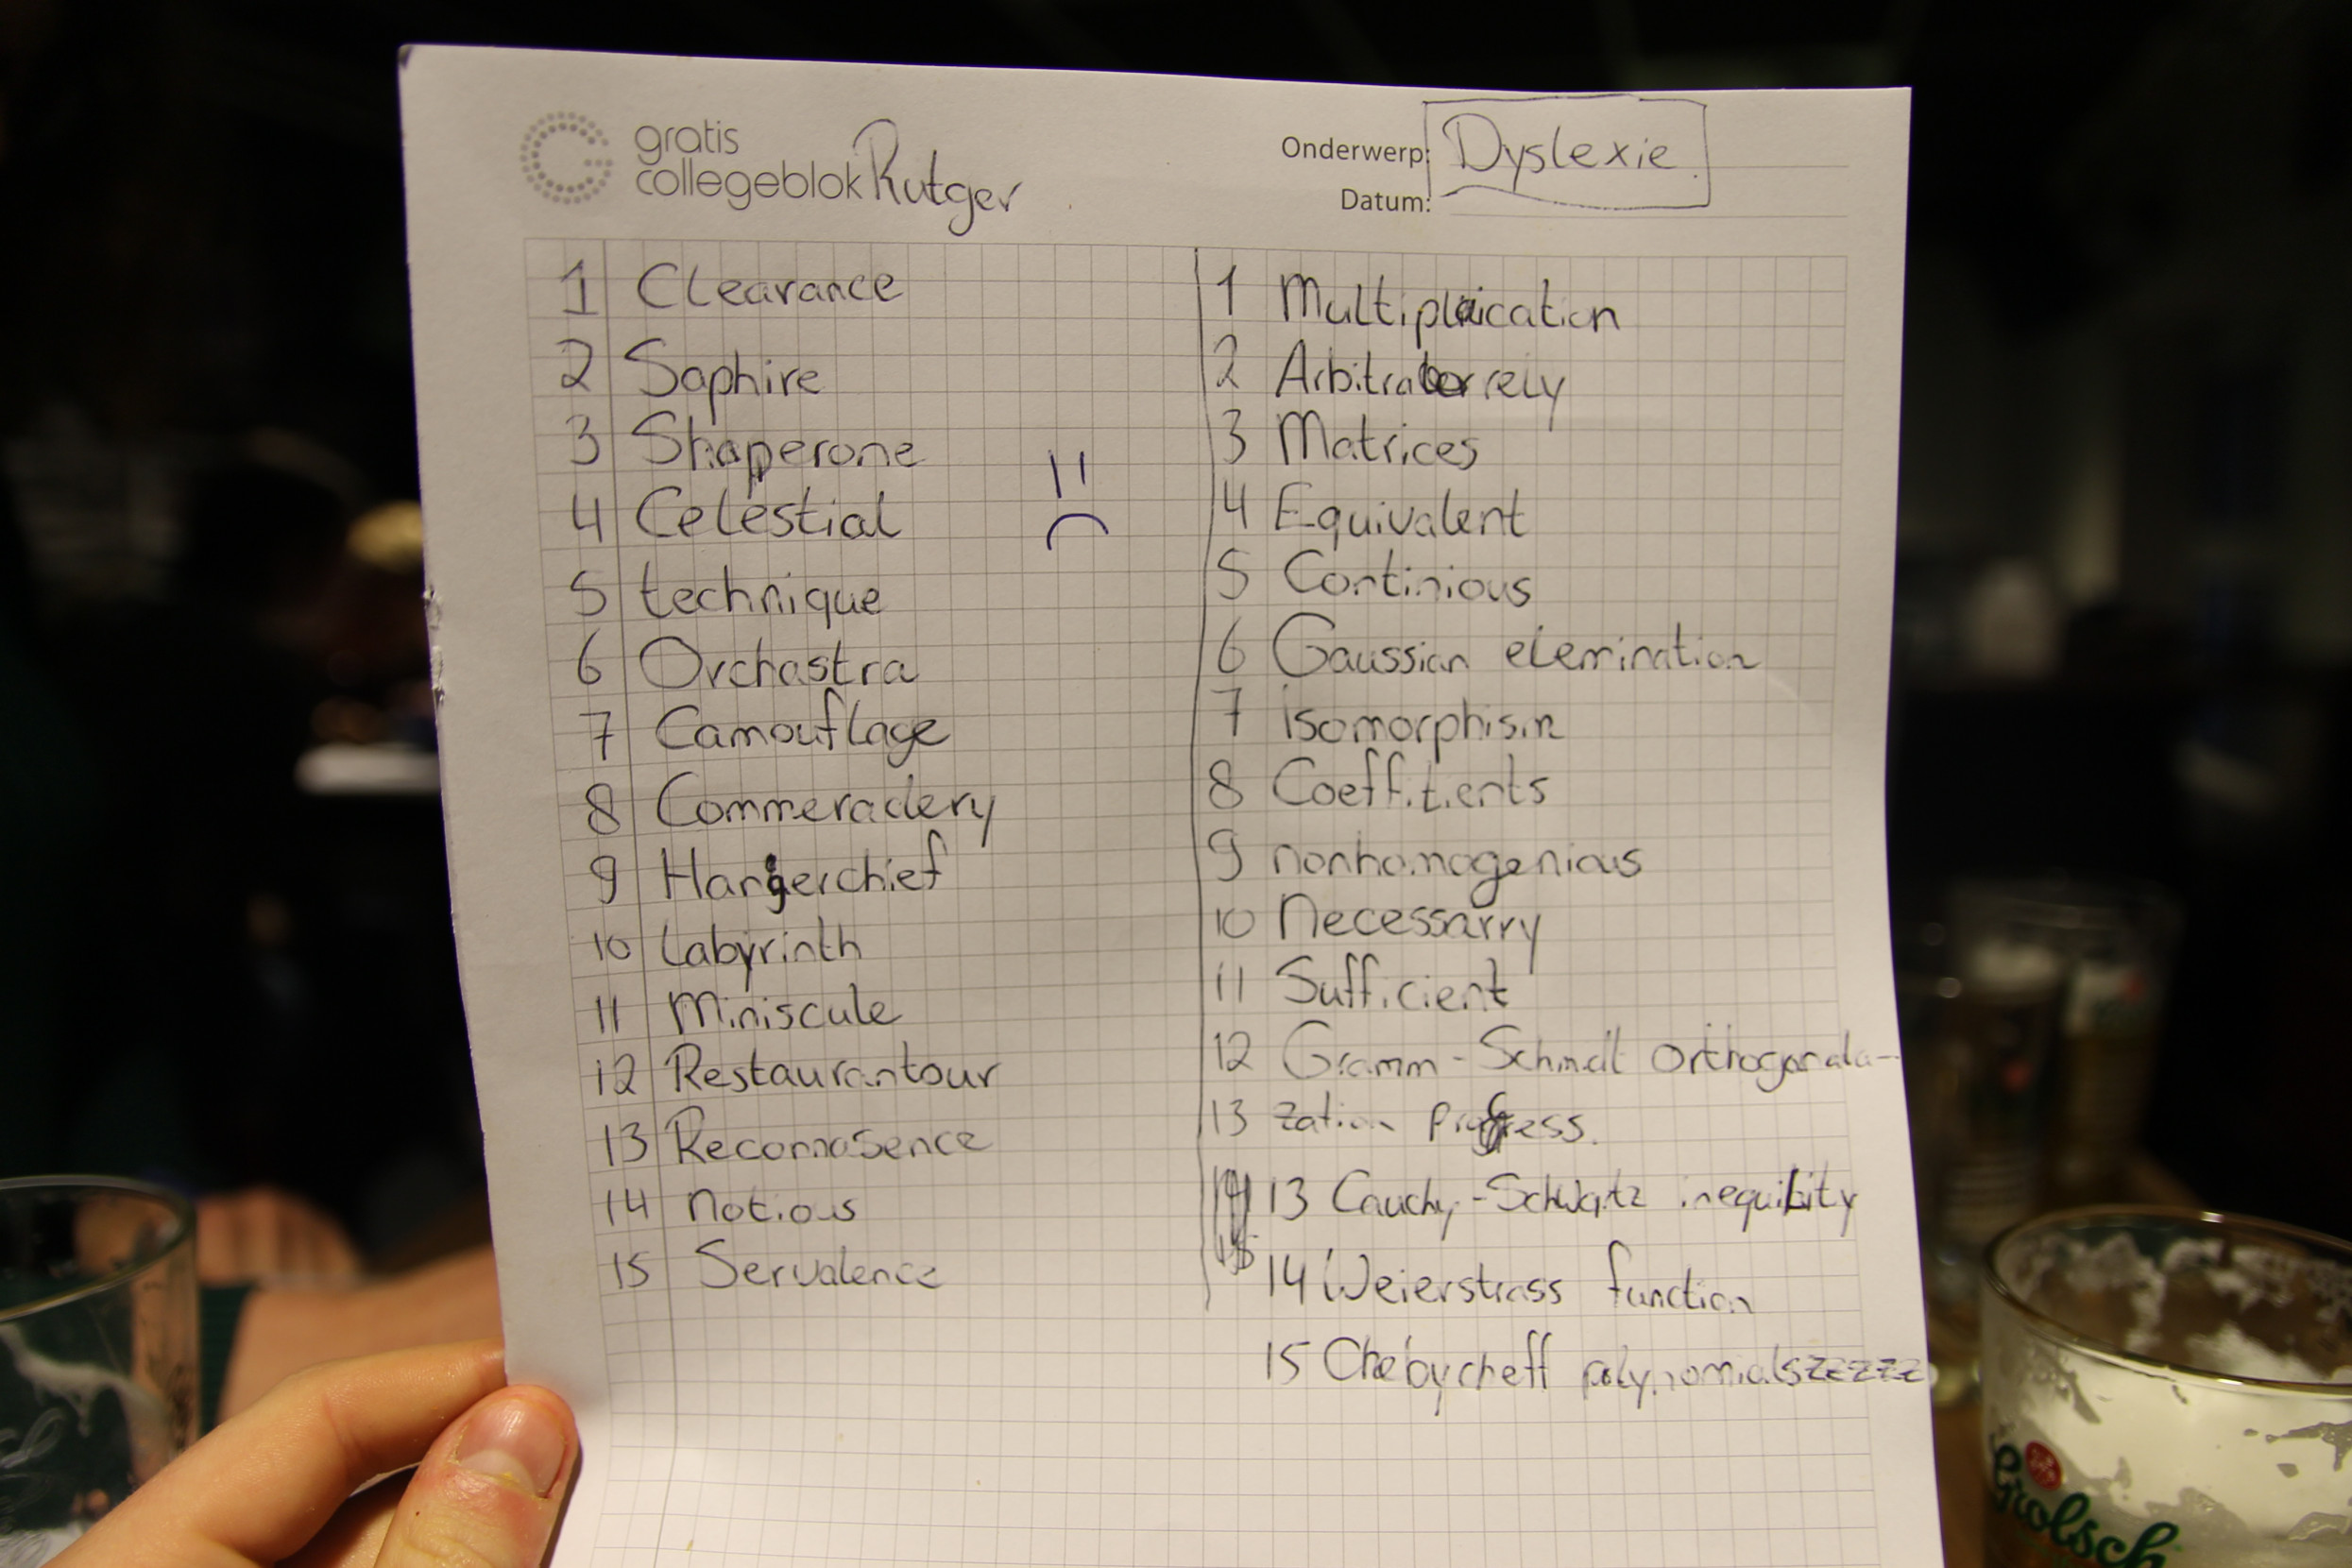 gratis
collegeblok Rutger
Onderwerp: Dyslexie
Datum:
1 Clearance
2 Saphire
3 Shaperone
4 Celestial
5 technique
6 Orchastra
7 Camouflage
8 Commeradery
9 Hangerchief
10 Labyrinth
11 Miniscule
12 Restaurantour
13 Reconnasence
14 Notious
15 Servalence
1 Multiplication
2 Arbitrarely
3 Matrices
4 Equivalent
5 Continious
6 Gaussian elemination
7 isomorphism
8 Coeffitients
9 nonhomogenious
10 Necessarry
11 Sufficient
12 Gramm-Schmidt Orthogonala-
13 zation
13 Cauchy-Schwartz inequility
14 Weierstrass function
15 Chebycheff polynomialszzzzz
Grolsch